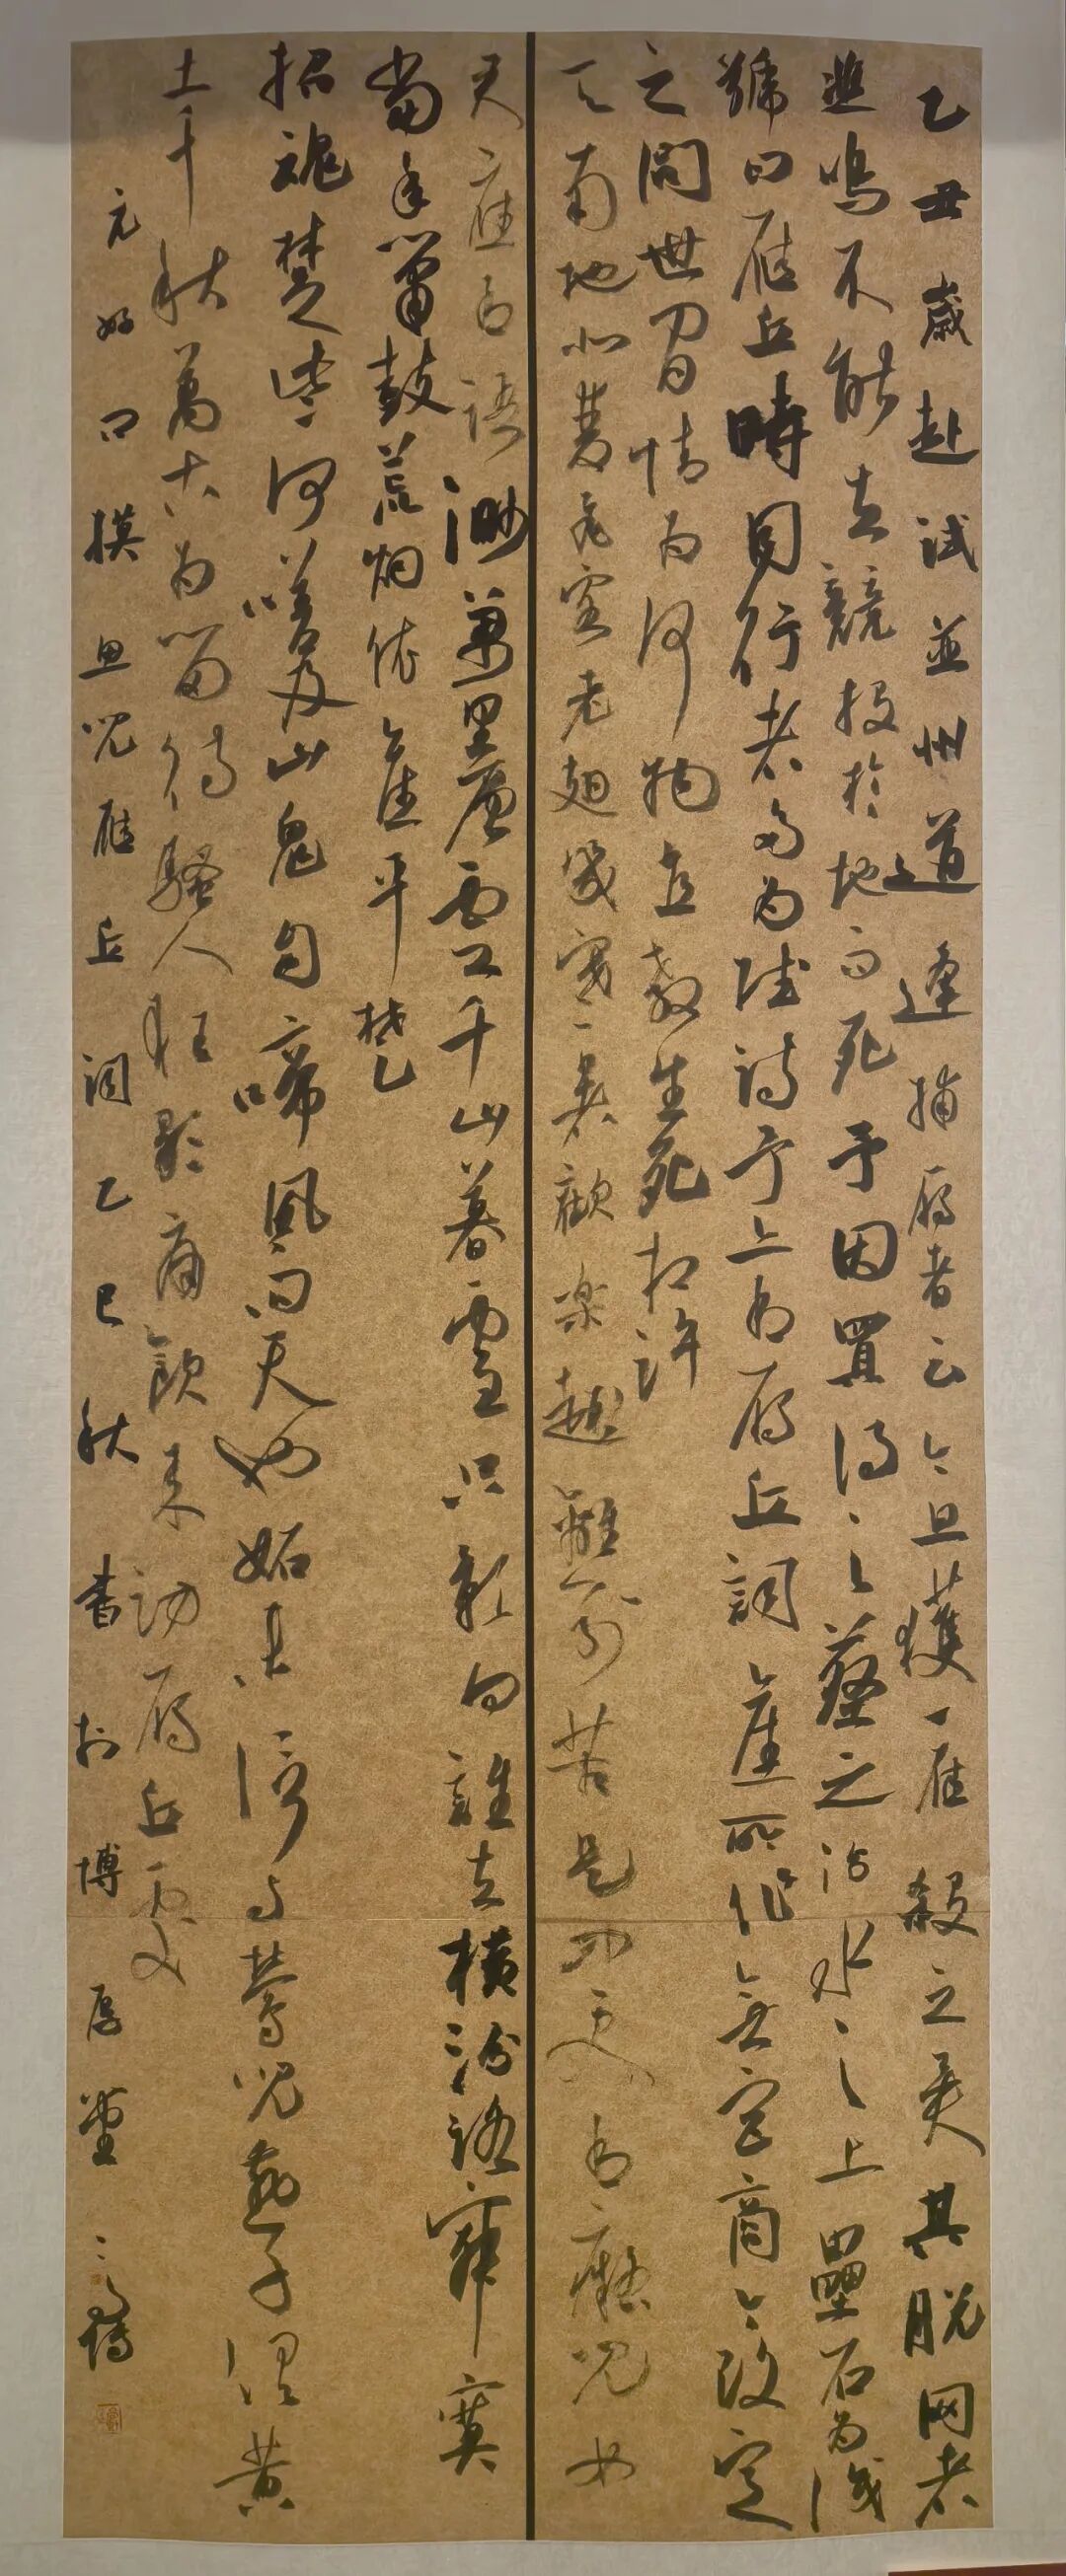 乙丑歲赴試並州道逢捕雁者云今旦獲一雁殺之矣其脫网者
悲鳴不能去競投於地而死予因買得之葬之汾水之上壘石為識
號曰雁丘時同行者多為賦詩予上有雁丘詞舊所作無宮商今改定
之問世間情为何物直教生死相许
天南地北雙飛客老翅幾寒暑歡樂趣離別苦是中更有癡兒女
君應有語渺萬里層雲千山暮雪只影向誰去橫汾路寂寞
當年簫鼓荒烟依舊平楚
招魂楚些何嗟及山鬼自啼風雨天也妬未信与鶯兒燕子俱黄
土千秋萬古为留待騷人狂歌痛飲来訪雁丘處
元好问摸鱼兒雁丘词乙巳秋書於博厚堂